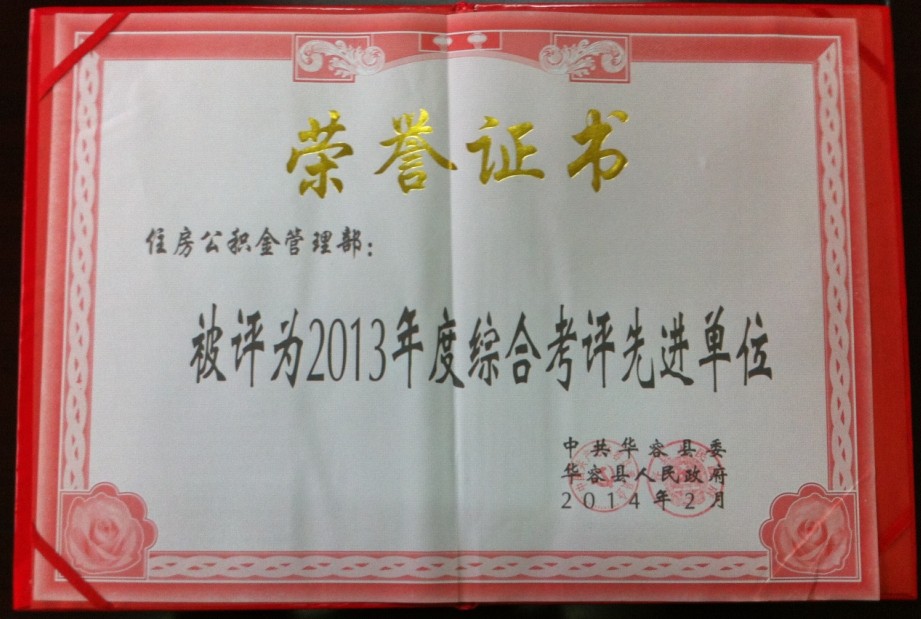 荣誉证书
住房公积金管理部：
被评为2013年度综合考评先进单位
中共华容县委
华容县人民政府
2014年2月